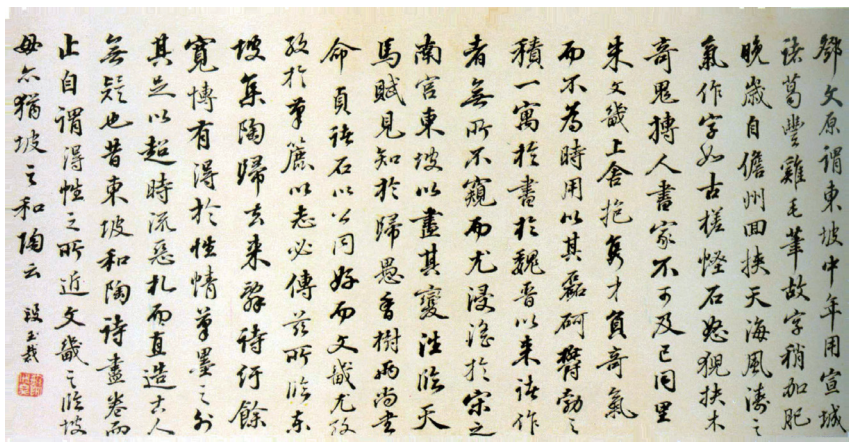 鄧文原謂東坡中年用宣城
諸葛豐雞毛筆故字稍加肥
晚歲自儋州回挾天海風濤之
氣作字如古槎怪石怒猊抉木
奇鬼搏人書家不可及已同里
朱文畿上舍抱雋才負奇氣
而不為時用以其磊砢鬱勃之
積一寓於書於魏晉以來諸作
者無所不窺而尤浸淫於宋之
南宮東坡以盡其變法臨天
馬賦見知於歸愚香樹兩尚書
命貞諸石以公同好而文畿尤孜
孜於以志必傳茲所臨東
坡集陶歸去來辭詩紆餘
寬博有得於性情筆墨之外
其足以超時流惡札而直造古人
無疑也昔東坡和陶詩盡卷而
止自謂得性之所近文畿之臨坡
毋亦猶坡之和陶云 段玉裁